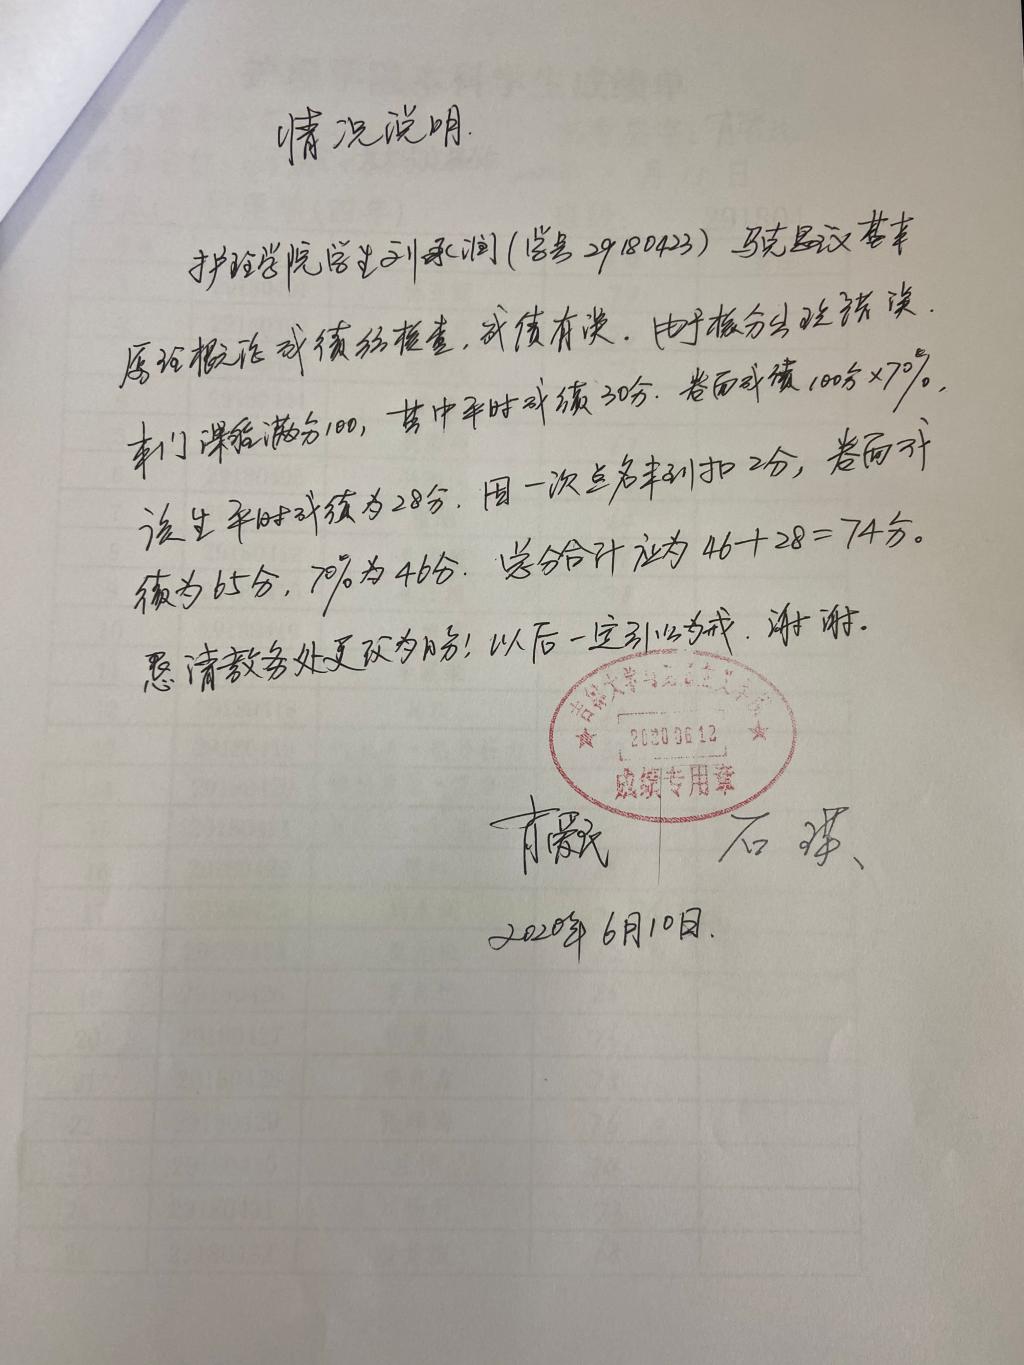 情况说明.
护理学院学生刘承润(学号29180423)马克思主义基本
原理概论成绩经核查,成绩有误.由于核分出现错误.
本门课程满分100,其中平时成绩30分.卷面成绩100分×70%,
该生平时成绩为28分.因一次点名未到扣2分,卷面成
绩为65分,70%为46分.总分合计应为46+28=74分。
恳请教务处更改为盼!以后一定引以为戒.谢谢。
吉林大学马克思主义学院
2020 06 12
成绩专用章
肖爱民 石瑛
2020年6月10日.